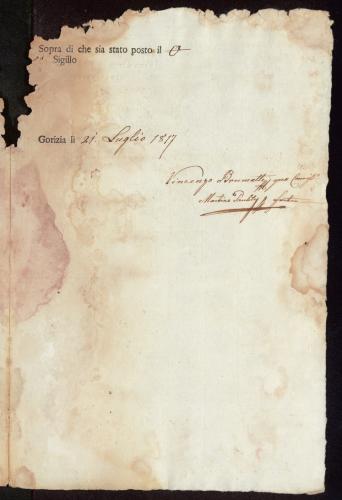 Sopra di che sia stato posto il O
Sigillo
Gorizia li 21 Luglio 1817
Vincenzo
Martino